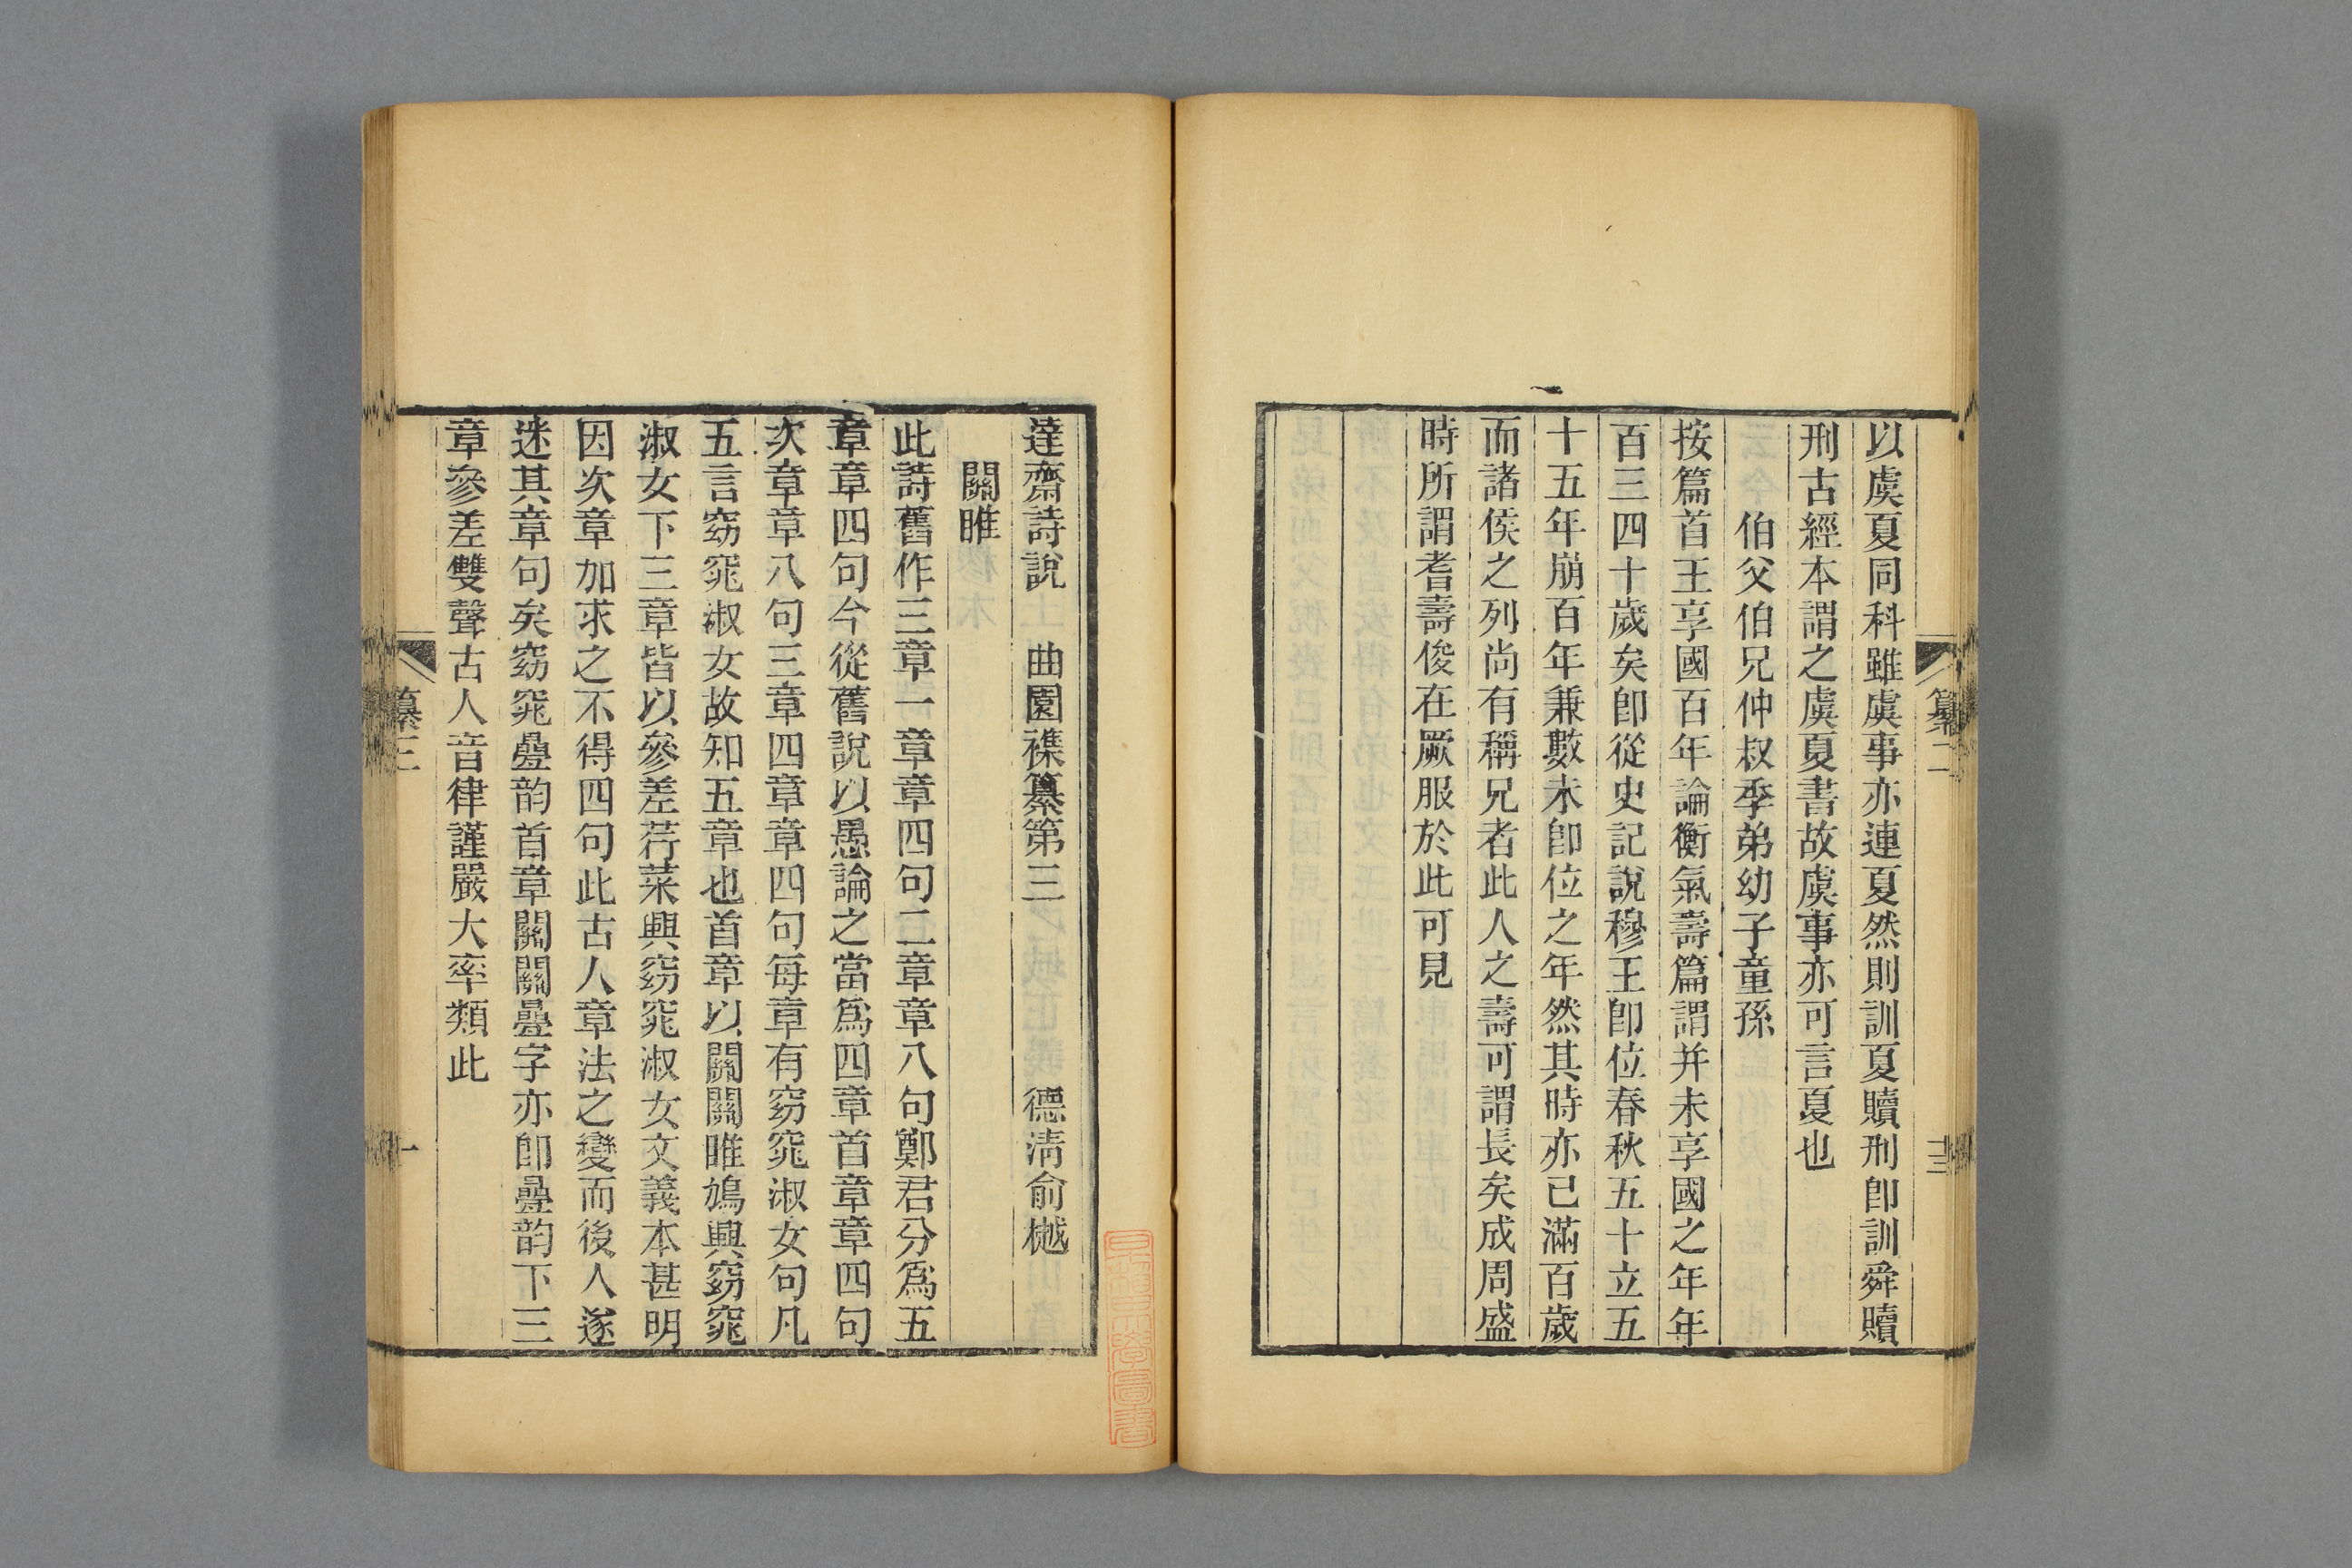 以虞夏同科雖虞事亦連夏然則訓夏贖刑卽訓舜贖
刑古經本謂之虞夏書故虞事亦可言夏也
伯父伯兄仲叔季弟幼子童孫
按篇首王享國百年論衡氣壽篇謂并未享國之年年
百三四十歲矣卽從史記說穆王卽位春秋五十立五
十五年崩百年兼數未卽位之年然其時亦已滿百歲
而諸侯之列尚有稱兄者此人之壽可謂長矣成周盛
時所謂耆壽俊在厥服於此可見
纂二
十三
達齋詩說 曲園襍纂第三 德淸俞樾
關雎
此詩舊作三章一章章四句二章章八句鄭君分爲五
章章四句今從舊說以愚論之當爲四章首章章四句
次章章八句三章四章章四句每章有窈窕淑女句凡
五言窈窕淑女故知五章也首章以關關雎鳩興窈窕
淑女下三章皆以參差荇菜興窈窕淑女文義本甚明
因次章加求之不得四句此古人章法之變而後人遂
迷其章句矣窈窕疊韵首章關關疊字亦卽疊韵下三
章參差雙聲古人音律謹嚴大率類此
纂三
一